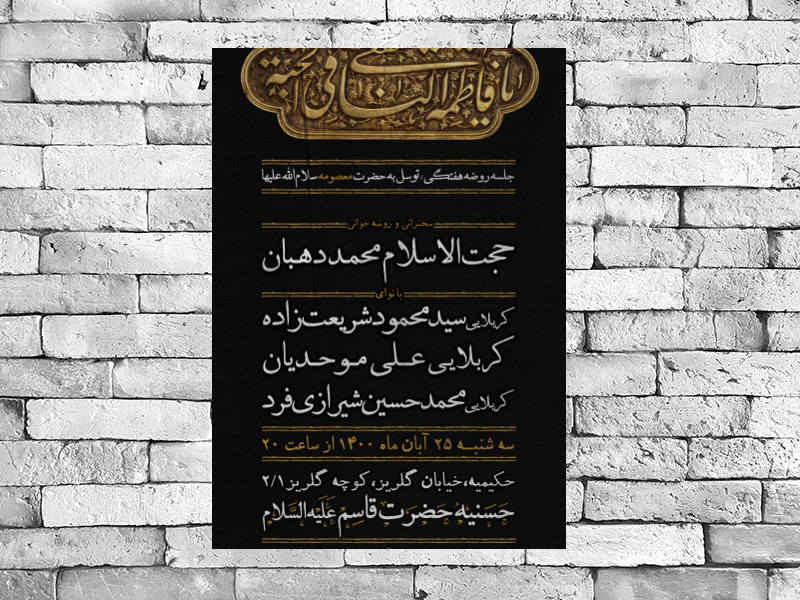 یا فاطمة اشفعی لنا فی الجنة
جلسه روضه هفتگی، توسل به حضرت معصومه سلام الله علیها
سخنرانی و روضه خوانی
حجت الاسلام محمد دهبان
با نوای
کربلایی سید محمود شریعت زاده
کربلایی علی موحدیان
کربلایی محمد حسین شیرازی فرد
سه شنبه ۲۵ آبان ماه ۱۴۰۰ از ساعت ۲۰
حکیمیه، خیابان گلریز، کوچه گلریز ۲/۱
حَسَنیه حَضرَت قاسِم عَلَیه السَّلام